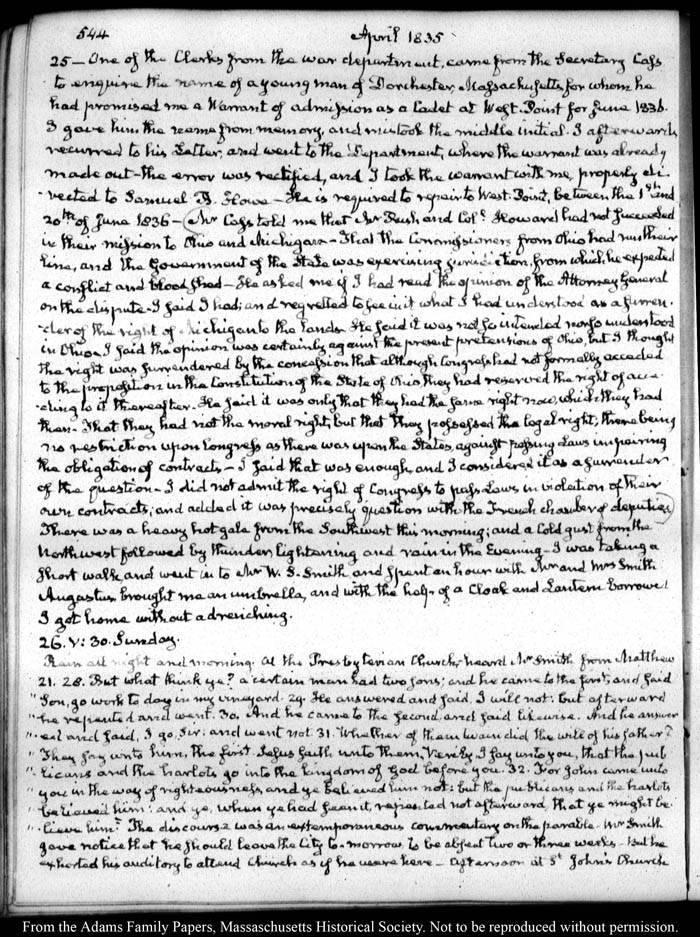 544
April 1835
25 — One of the Clerks from the war department, came from the Secretary Cass
to enquire the name of a young man of Dorchester, Massachusetts for whom he
had promised me a Warrant of admission as a Cadet at West-Point for June 1836.
I gave him the name from memory, and mistook the middle initial. I afterwards
recurred to his Letter, and went to the Department, where the warrant was already
made out — the error was rectified, and I took the warrant with me, properly di-
-rected to Samuel B. Howe — He is required to repair to West-Point, between the 1st and
20th of June 1836 — Mr Cass told me that Mr Rush, and Coll. Howard had not succeeded
in their mission to Ohio and Michigan — That the Commissioners from Ohio had run their
line, and the Government of the State was exercising jurisdiction, from which he expected
a conflict and blood shed — He asked me if I had read the opinion of the Attorney General
on the dispute. I said I had; and regretted to see in it what I had understood as a surren-
-der of the right of Michigan to the Lands. He said it was not so intended nor so understood
in Ohio. I said the opinion was certainly against the present pretensions of Ohio, but I thought
the right was surrendered by the concession that although Congress had not formally acceded
to the proposition in the Constitution of the State of Ohio they had reserved the right of acce-
-ding to it thereafter. He said it was only that they had the same right now, which they had
then. That they had not the moral right, but that they possessed the legal right; there being
no restriction upon Congress as there was upon the States, against passing Laws impairing
the obligation of contracts — I said that was enough, and I considered it as a surrender
of the question. I did not admit the right of Congress to pass Laws in violation of their
own contracts; and added it was precisely question with the French chamber of deputies)
There was a heavy hot gale from the Southwest this morning; and a Cold gust from the
Northwest followed by thunder, lightening and rain in the Evening. I was taking a
short walk, and went in to Mr W. S. Smith and spent an hour with Mr and Mrs Smith
Augustus brought me an umbrella, and with the help of a Cloak and Lantern borrowed
I got home without a drenching.
26. V: 30. Sunday.
Rain all night and morning. At the Presbyterian Church, heard Mr Smith from Matthew
21. 28. But what think ye? a certain man had two sons; and he came to the first, and said
" Son, go work to day in my vineyard. 29. He answered and said, I will not: but afterward
" he repented and went. 30. And he came to the second, and said likewise. And he answer
" ed and said, I go, Sir: and went not. 31. Whether of them twain did the will of his father?
" They say unto him, the first. Jesus saith unto them, Verily I say unto you, that the pub
" licans and the harlots go into the kingdom of God before you. 32. For John came unto
" you in the way of righteousness, and ye believed him not: but the publicans and the harlots
" believed him: and ye, when ye had seen it, repented not afterward, that ye might be
" lieve him." The discourse was an extemporaneous commentary on the parable. Mr Smith
gave notice that he should leave the City to-morrow, to be absent two or three weeks. But he
exhorted his auditory to attend Church as if he were here — Afternoon at St John's Church
From the Adams Family Papers, Massachusetts Historical Society. Not to be reproduced without permission.